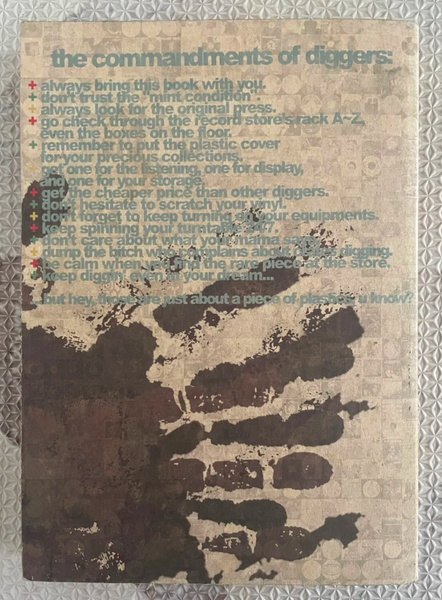 the commandments of diggers:
+ always bring this book with you.
+ don't trust the "mint condition".
always look for the original press.
+ go check through the record store's rack A~Z,
even the boxes on the floor.
+ remember to put the plastic cover
for your precious collections.
get one for the listening, one for display,
and one for your storage.
+ get the cheaper price than other diggers.
+ don't hesitate to scratch your vinyl.
+ don't forget to keep turning on your equipments.
+ keep spinning your turntable 24/7.
+ don't care about what your mama says.
+ dump the bitch who complains about your digging.
+ be calm when you find the rare piece at the store.
+ keep diggin' even in your dream...
but hey, those are just about a piece of plastics, u know?